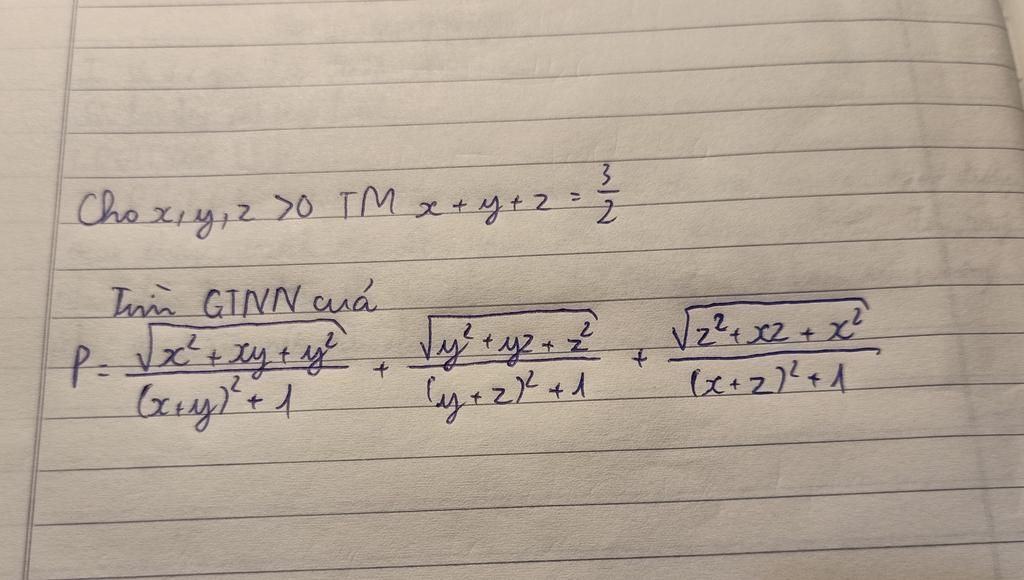 Cho x, y, z >0 TM x + y + z = 3/2
Tìm GTNN cuả
P = √(x² + xy + y²)/((x+y)² + 1) + √(y² + yz + z²)/((y+z)² + 1) + √(z² + xz + x²)/((x+z)² + 1)